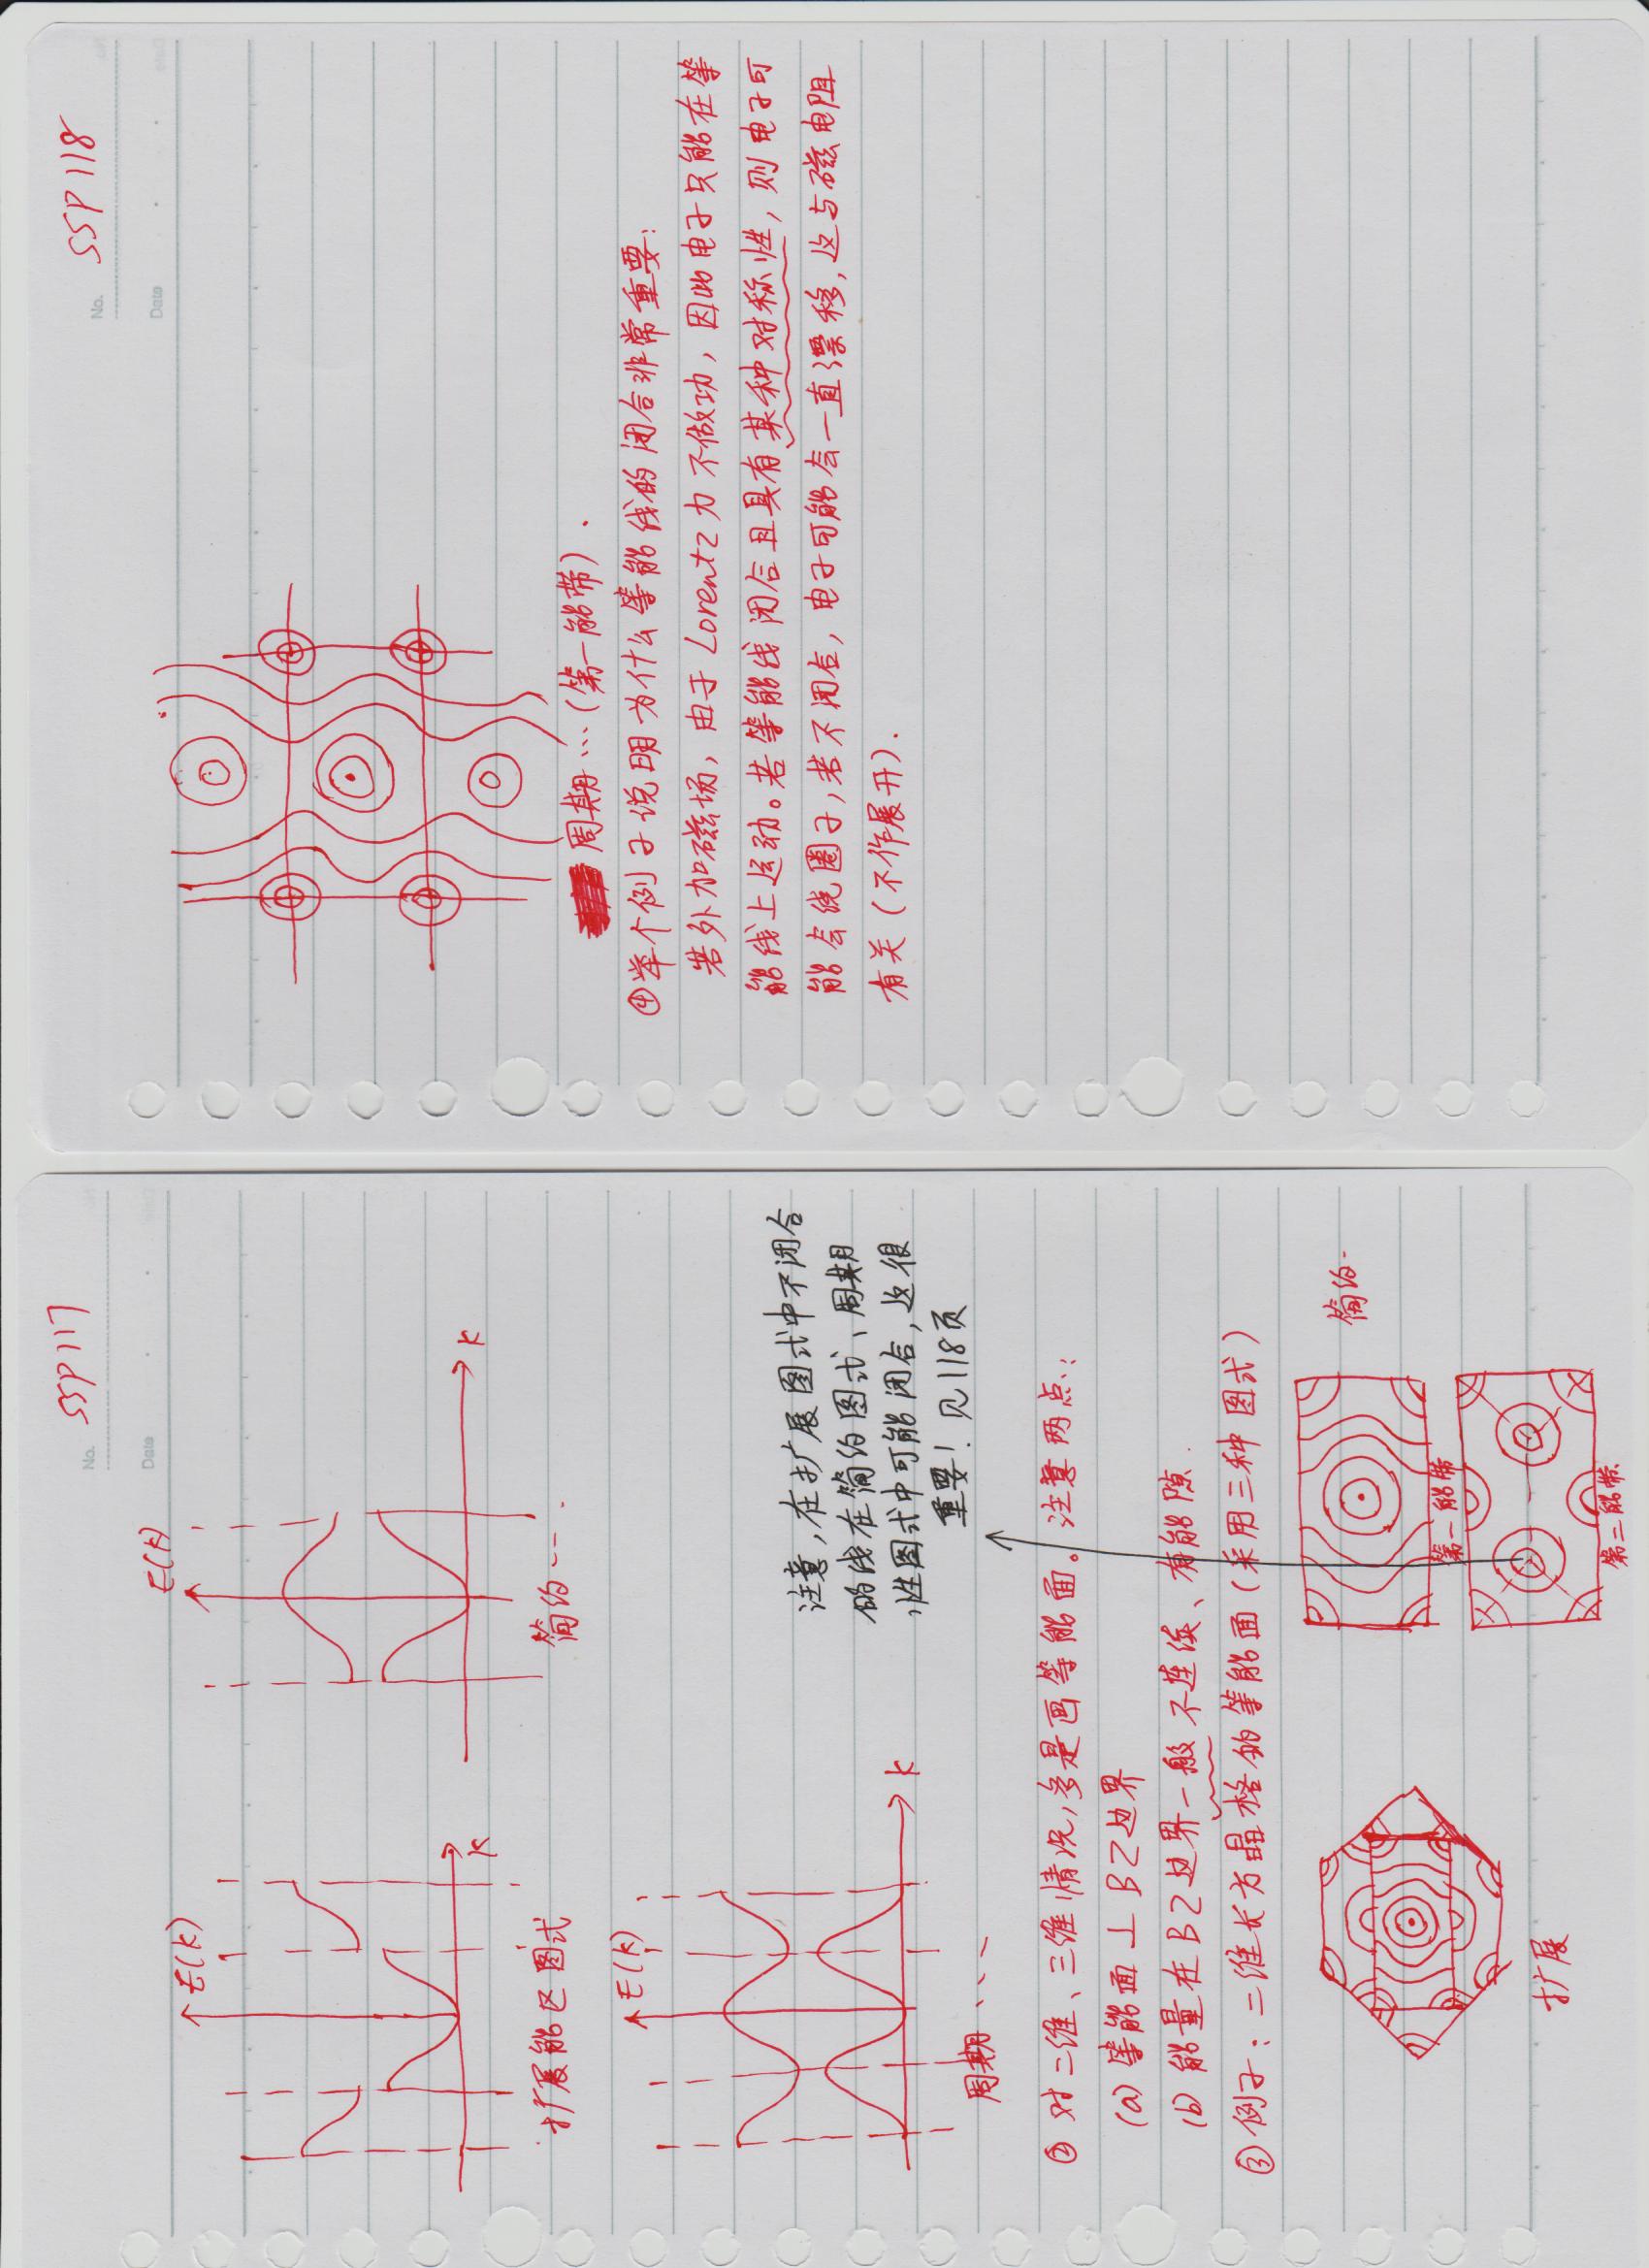 No. SSP 117
Date
E(k)
k
扩展能区图式
E(k)
k
简约……
E(k)
k
周期……
注意，在扩展图式中不闭合
的线在简约图式、周期
性图式中可能闭合，这很
重要！见118页
② 对二维、三维情况，多是画等能面。注意两点：
(a) 等能面⊥BZ边界
(b) 能量在BZ边界一般不连续、有能隙.
③ 例子：二维长方晶格的等能面（采用三种图式）
扩展
第一能带
简约…
第二能带
No. SSP 118
Date
周期…（第一能带）.
④举个例子说明为什么等能线的闭合非常重要：
若外加磁场，由于Lorentz力不做功，因此电子只能在等
能线上运动。若等能线闭合且具有某种对称性，则电子可
能会绕圈子，若不闭合，电子可能会一直漂移，这与磁电阻
有关（不作展开）.